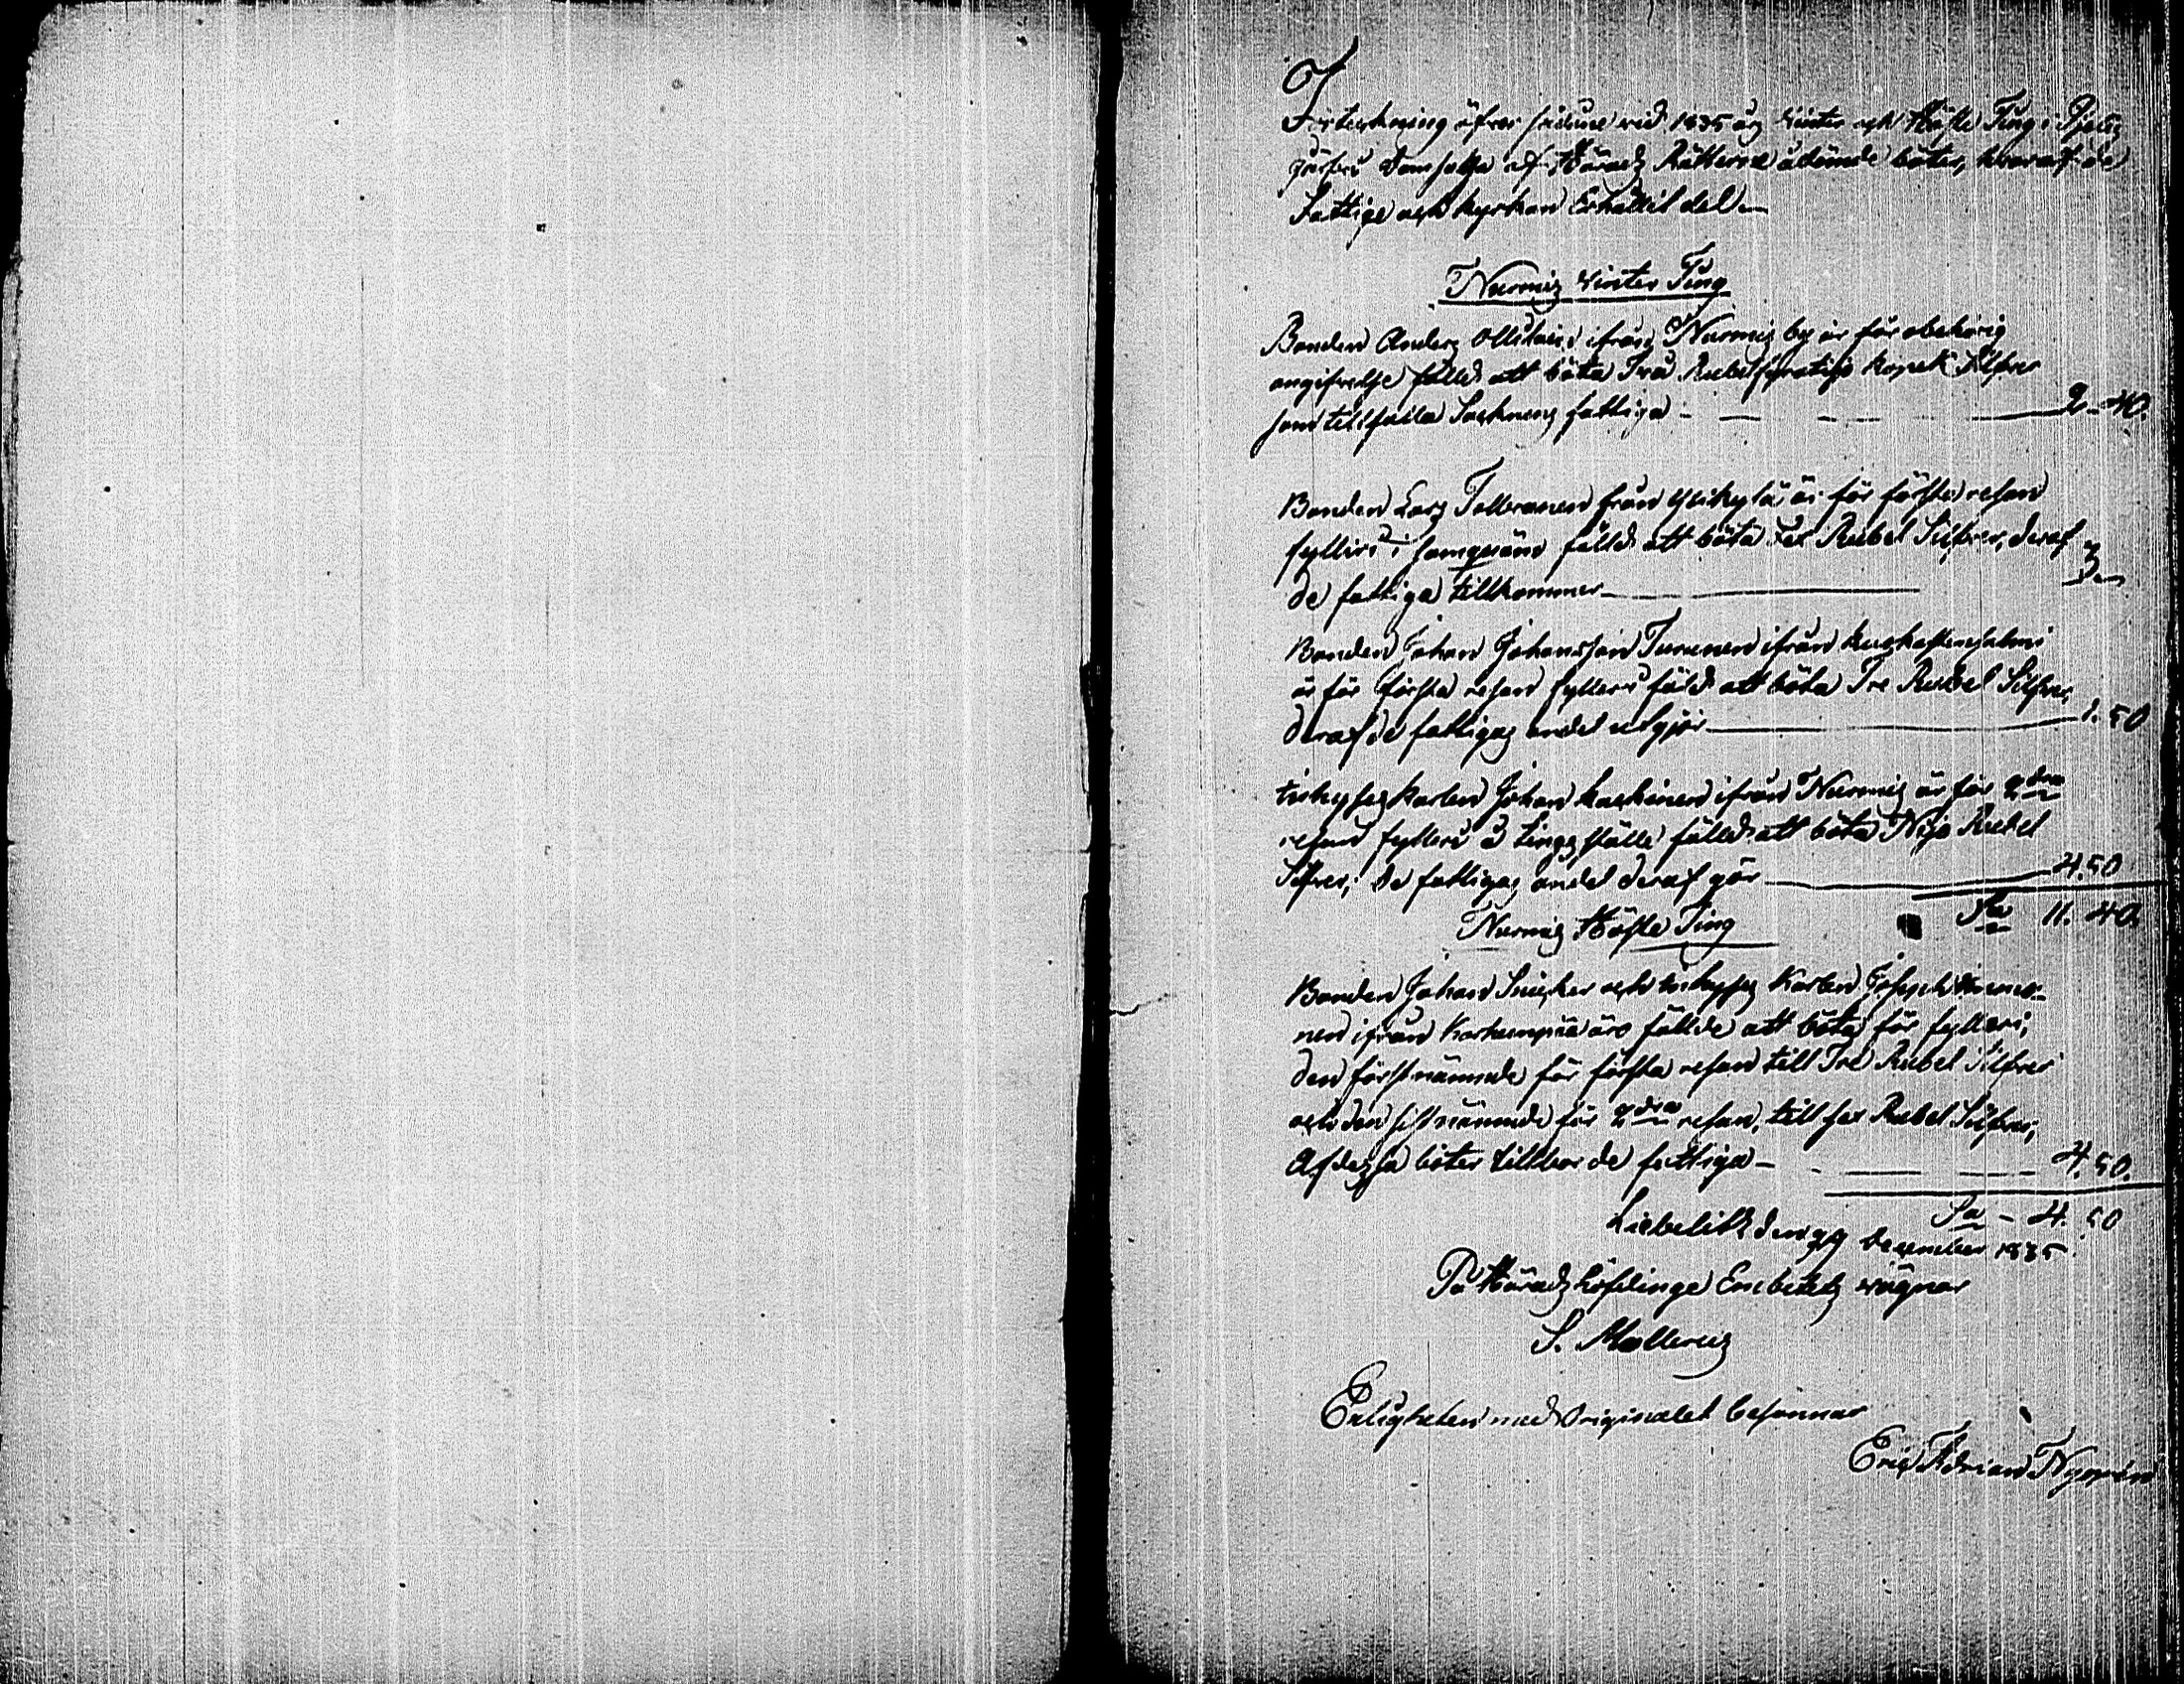 Förteckning öfver sådane vid 1835 års Vinter och Höste Ting i Pielis
Domsaga af Härads Rätterne ådömde böter, hvaraf de
Fattige och kyrkan Erhållit del
Nurmis Vinter Ting
Bonden Anders ifrån Nurmis by är för obehörig
angifvelse fälld att böta Två Rubel fyratijo kopek Silfver
som tillfalla Socknens fattiga 2. 40.
Bonden Lars Tolvanen från är för första resan
fylleri i fälld att böta sex Rubel Silfver, deraf
de fattiga tillkommer 3
Bonden Johan Johansson Turunen ifrån
är för första resan fylleri fäld att böta Tre Rubel Silfver,
deraf de fattigas andel utgjör 1. 50
Karlen Johan ifrån Nurmis är för 2dra
resan fylleri å tings ställe fälld att böta Nijo Rubel
Silfver, de fattigas andel deraf gör 4. 50
Sa 11. 40.
Nurmis Höste Ting
Bonden Johan och Karlen Joseph
nen ifrån äro fällde att böta för fylleri,
den förstnämnde för första resan till Tre Rubel Silfver
och den sistnämnde för 2dra resan, till sex Rubel Silfver,
Af dessa böter tillhör de fattiga 4. 50.
Sa 4. 50
Liebelitz den December 1835.
På Häradshöfdinge Embetets vägnar
S. Mollerus
Enligheten med Originalet besannar
Eric Adrian Nygrén